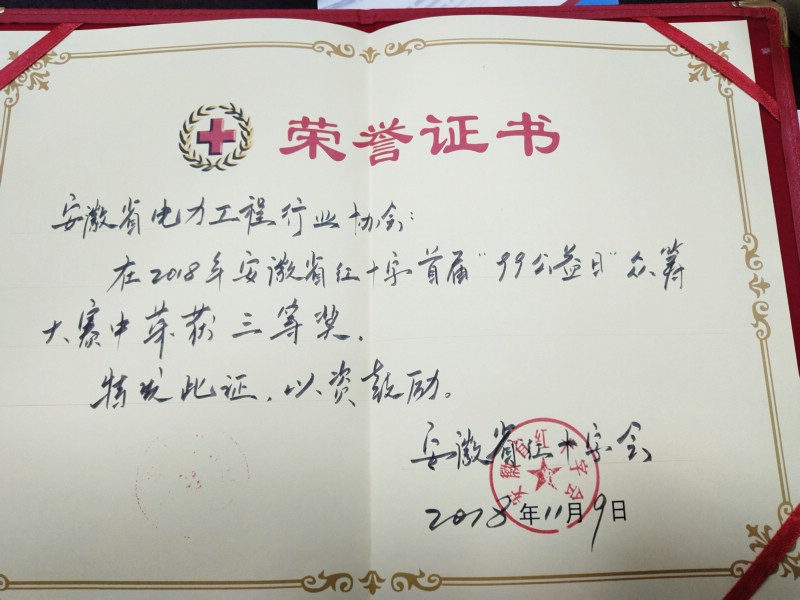 荣誉证书
安徽省电力工程行业协会：
在2018年安徽省红十字首届“99公益日”众筹
大赛中荣获三等奖．
特发此证．以资鼓励。
安徽省红十字会
2018年11月9日
安徽省红十字会